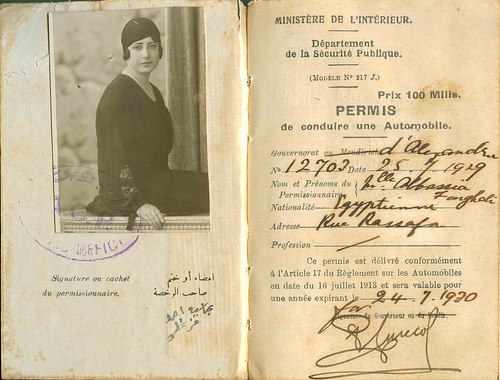 Signature ou cachet
du permissionnaire.
امضاء أو ختم
صاحب الرخصة
MINISTÈRE DE L'INTÉRIEUR.
Département
de la Sécurité Publique.
(MODÈLE Nº 217 J.)
Prix 100 Mills.
PERMIS
de conduire une Automobile.
Gouvernorat ou d'Alexandrie
Nº 12703 Date 25 7 1929
Nom et Prénoms du Permissionnaire Mlle Abassia Farghali
Nationalité Egyptienne
Adresse Rue Rassafa
Profession
Ce permis est délivré conformément
à l'Article 17 du Règlement sur les Automobiles
en date du 16 juillet 1913 et sera valable pour
une année expirant le 24.7.1930